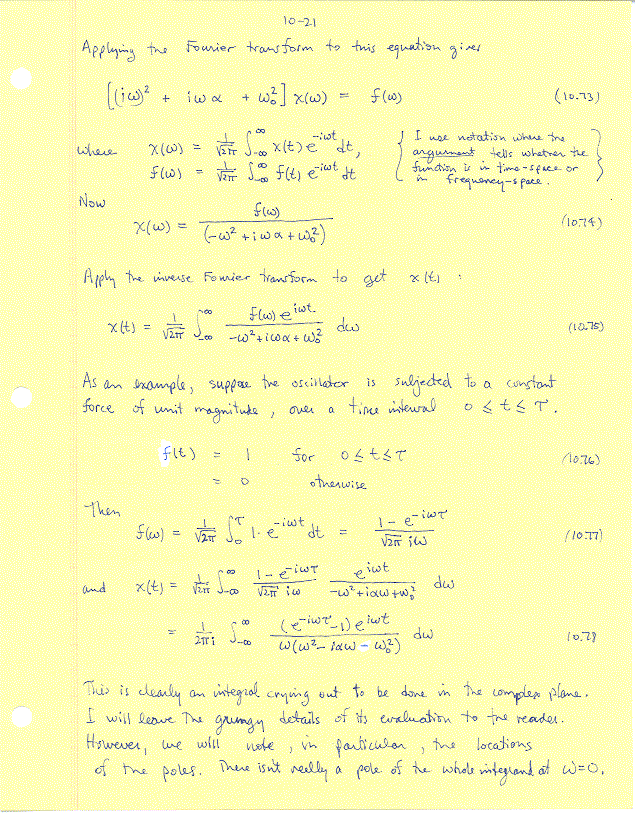 10-21
Applying the Fourier transform to this equation gives
[(iω)² + iωα + ω₀²] x(ω) = f(ω) (10.73)
where x(ω) = 1/√2π ∫_{-∞}^{∞} x(t) e^{-iωt} dt,
f(ω) = 1/√2π ∫_{-∞}^{∞} f(t) e^{-iωt} dt
{ I use notation where the
argument tells whether the
function is in time-space or
in frequency-space. }
Now
x(ω) = f(ω) / (-ω² + iωα + ω₀²) (10.74)
Apply the inverse Fourier transform to get x(t) :
x(t) = 1/√2π ∫_{-∞}^{∞} f(ω) e^{iωt} / (-ω² + iωα + ω₀²) dω (10.75)
As an example, suppose the oscillator is subjected to a constant
force of unit magnitude, over a time interval 0 ≤ t ≤ τ.
f(t) = 1 for 0 ≤ t ≤ τ (10.76)
= 0 otherwise
Then
f(ω) = 1/√2π ∫_0^τ 1· e^{-iωt} dt = (1 - e^{-iωτ}) / (√2π iω) (10.77)
and x(t) = 1/√2π ∫_{-∞}^{∞} (1 - e^{-iωτ}) / (√2π iω) e^{iωt} / (-ω² + iαω + ω₀²) dω
= 1/2πi ∫_{-∞}^{∞} (e^{-iωτ} - 1) e^{iωt} / (ω(ω² - iαω - ω₀²)) dω 10.78
This is clearly an integral crying out to be done in the complex plane.
I will leave the grungy details of its evaluation to the reader.
However, we will note, in particular, the locations
of the poles. There isn't really a pole of the whole integrand at ω=0.